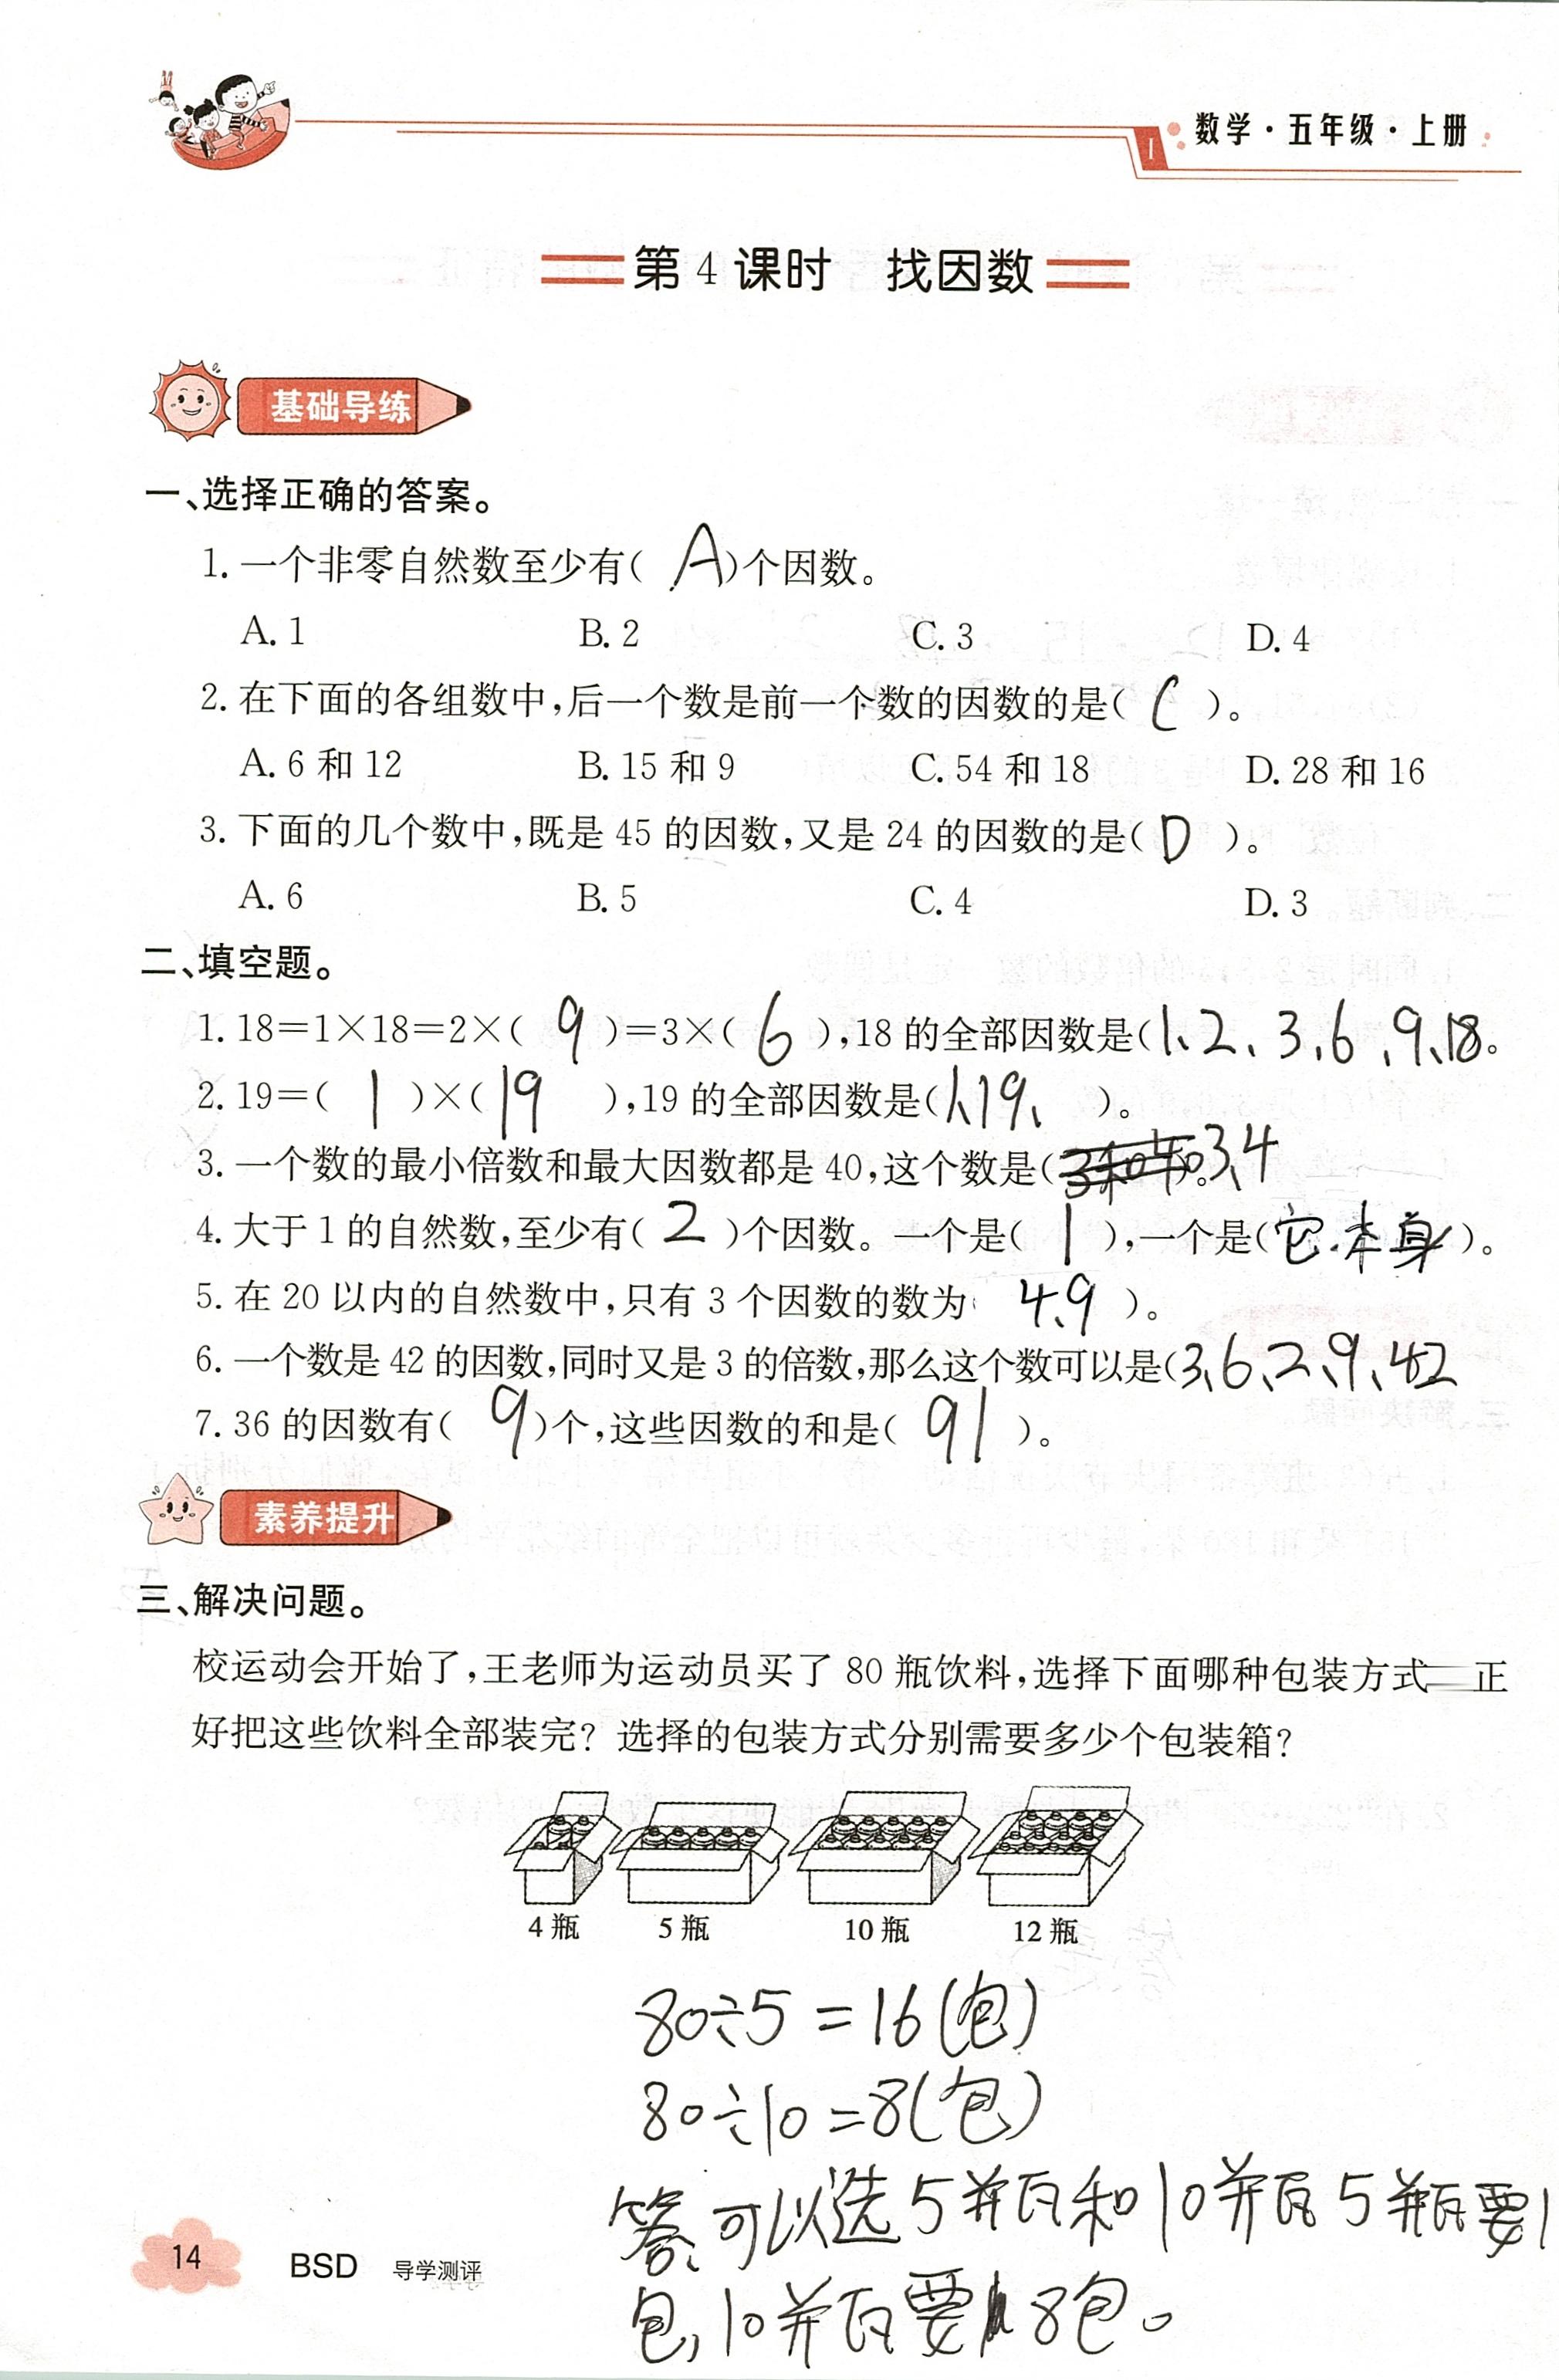 数学·五年级·上册
第4课时 找因数
基础导练
一、选择正确的答案。
1. 一个非零自然数至少有( A )个因数。
A. 1 B. 2 C. 3 D. 4
2. 在下面的各组数中,后一个数是前一个数的因数的是( C )。
A. 6 和 12 B. 15 和 9 C. 54 和 18 D. 28 和 16
3. 下面的几个数中,既是 45 的因数,又是 24 的因数的是( D )。
A. 6 B. 5 C. 4 D. 3
二、填空题。
1. 18=1×18=2×( 9 )=3×( 6 ),18 的全部因数是(1、2、3、6、9、18。
2. 19=( 1 )×( 19 ),19 的全部因数是(1、19、 )。
3. 一个数的最小倍数和最大因数都是 40,这个数是( )。3、4
4. 大于 1 的自然数,至少有( 2 )个因数。一个是( 1 ),一个是(它本身)。
5. 在 20 以内的自然数中,只有 3 个因数的数为( 4、9 )。
6. 一个数是 42 的因数,同时又是 3 的倍数,那么这个数可以是(3、6、2、9、42
7. 36 的因数有( 9 )个,这些因数的和是( 91 )。
素养提升
三、解决问题。
校运动会开始了,王老师为运动员买了 80 瓶饮料,选择下面哪种包装方式 正
好把这些饮料全部装完? 选择的包装方式分别需要多少个包装箱?
4 瓶 5 瓶 10 瓶 12 瓶
80÷5=16(包)
80÷10=8(包)
答:可以选5瓶和10瓶 5瓶要1
包,10瓶要8包。
14 BSD 导学测评